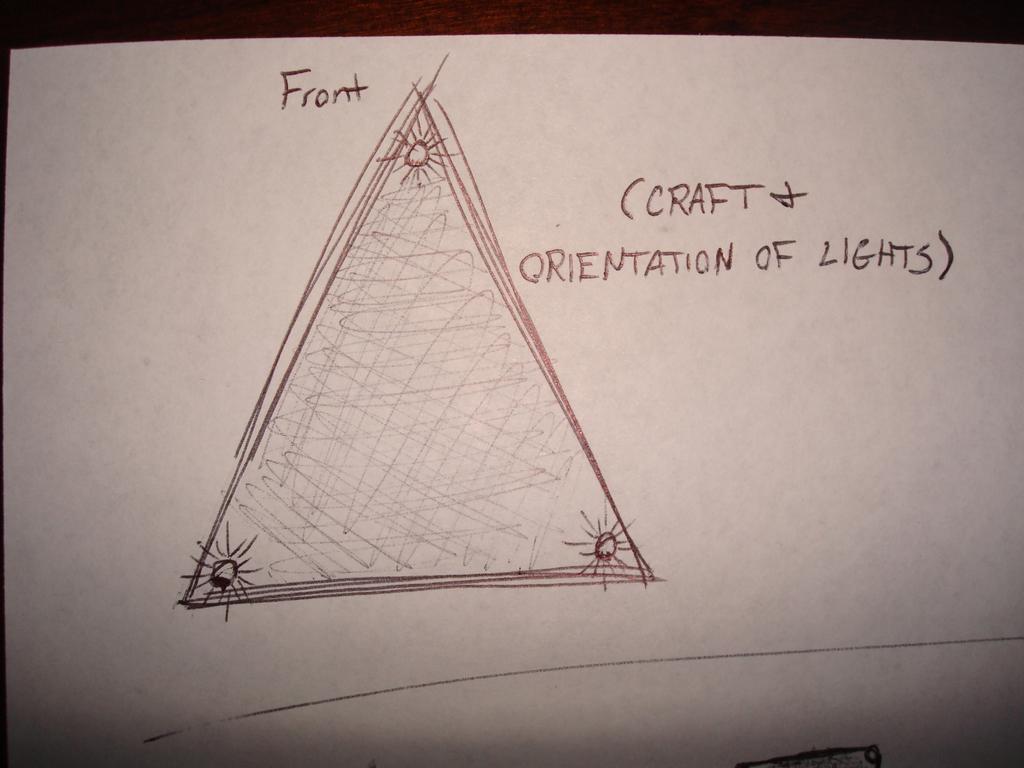 Front
(CRAFT +
ORIENTATION OF LIGHTS)